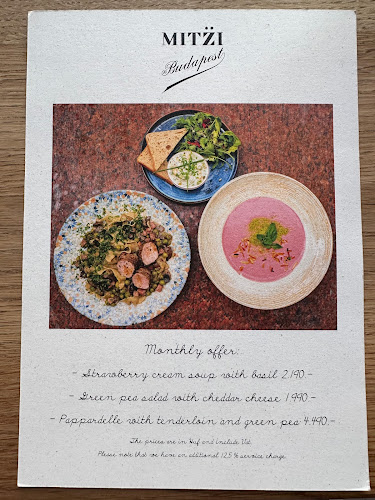 MITZI
Budapest
Monthly offer:
- Strawberry cream soup with basil 2.190.-
- Green pea salad with cheddar cheese 1.990.-
- Pappardelle with tenderloin and green pea 4.490.-
The prices are in Huf and include Vat.
Please note that we have an additional 12,5 % service charge.